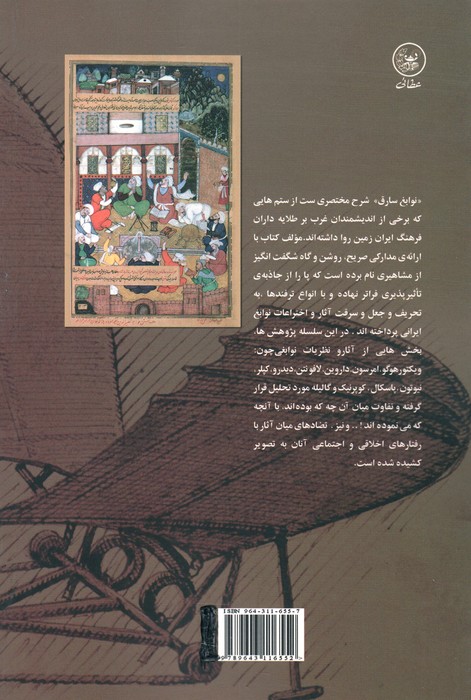 عطائی
«نوابغ سارق» شرح مختصری ست از ستم هایی
که برخی از اندیشمندان غرب بر طلایه داران
فرهنگ ایران زمین روا داشته‌اند. مؤلف کتاب با
ارائه‌ی مدارکی صریح، روشن و گاه شگفت انگیز
از مشاهیری نام برده است که پا را از جاذبه‌ی
تأثیرپذیری فراتر نهاده و با انواع ترفندها، به
تحریف و جعل و سرقت آثار و اختراعات نوابغ
ایرانی پرداخته اند. در این سلسله پژوهش ها،
بخش هایی از آثارو نظریات نوابغی‌چون:
ویکتورهوگو، امرسون، داروین، لافونتن، دیدرو، کپلر،
نیوتون، پاسکال، کوپرنیک و گالیله مورد تحلیل قرار
گرفته و تفاوت میان آن چه که بوده‌اند، با آنچه
که می نموده اند!.. و نیز، تضادهای میان آثار با
رفتارهای اخلاقی و اجتماعی آنان به تصویر
کشیده شده است.
ISBN 964-311-655-7
9 789643 116552